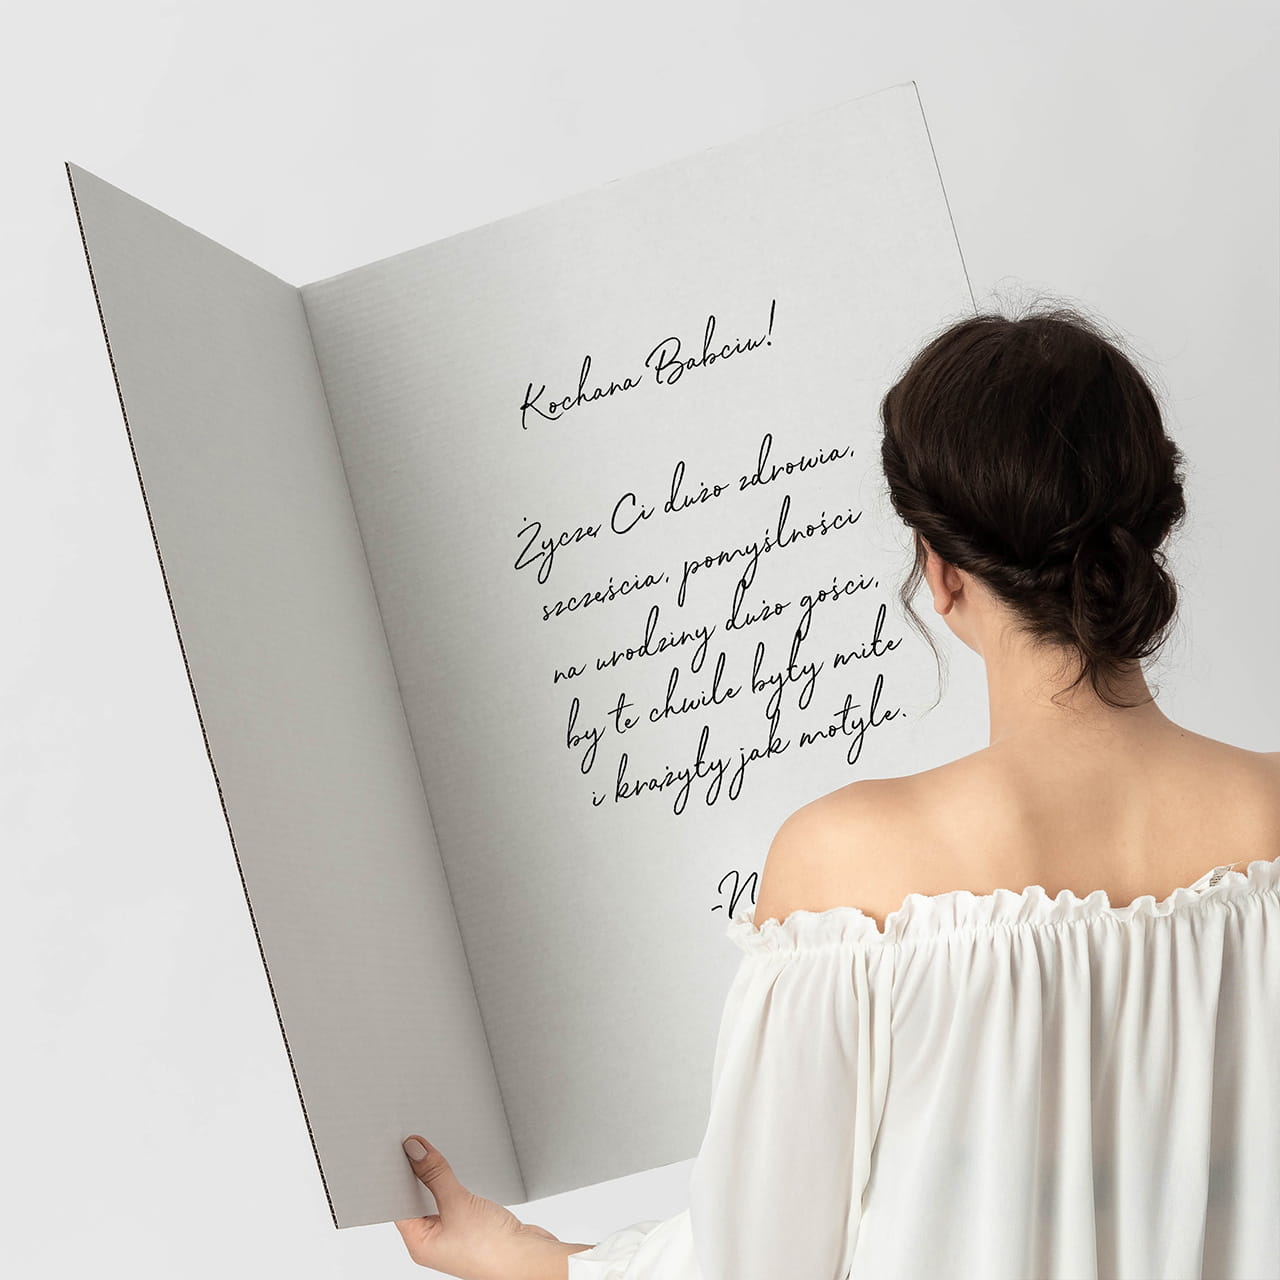 Kochana Babciu!
Życzę Ci dużo zdrowia,
szczęścia, pomyślności
na urodziny dużo gości,
by te chwile były miłe
i krążyły jak motyle.